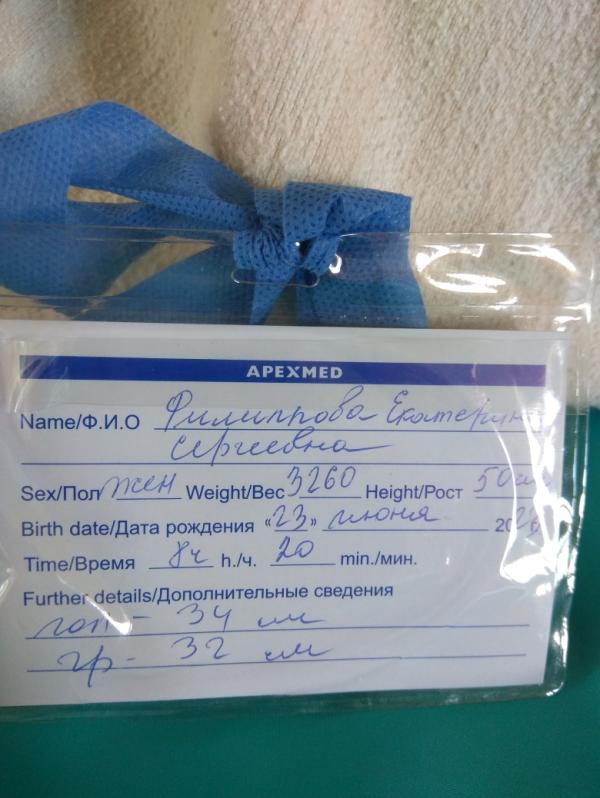 APEXMED
Name/Ф.И.О Филиппова Екатерина
Сергеевна
Sex/Пол жен Weight/Вес 3260 Height/Рост 50 см
Birth date/Дата рождения «23» июня 20
Time/Время 8ч h./ч. 20 min./мин.
Further details/Дополнительные сведения
гол - 34 см
гр - 32 см